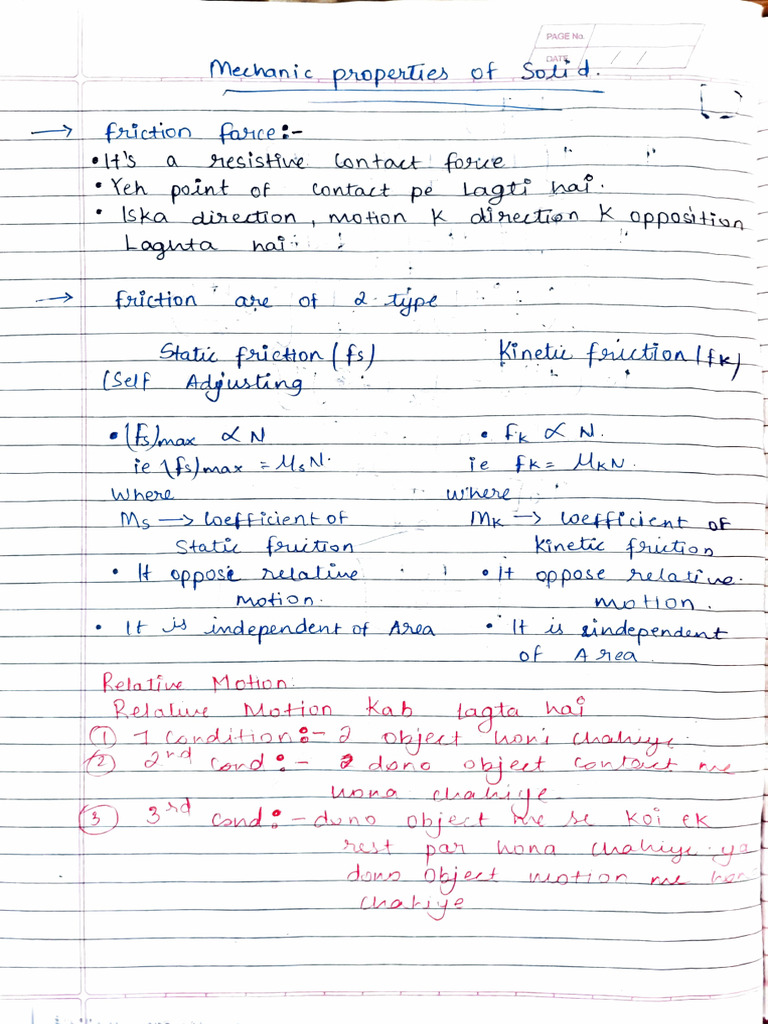 PAGE No.
DATE / /
Mechanic properties of Solid.
→ friction farce:-
• It's a resistive contact force
• Yeh point of contact pe Lagti hai.
• Iska direction, motion K direction K opposition
Laghta hai
→ friction are of 2 type
Static friction (fs) Kinetic friction (fK)
(Self Adjusting
• (Fs)max ∝ N • FK ∝ N.
ie (fs)max = MsN. ie fK = MKN.
Where where
Ms → Coefficient of MK → Coefficient of
Static friction Kinetic friction
• It oppose relative • It oppose relative
motion. motion.
• It is independent of Area • It is independent
of Area
Relative Motion:
Relative Motion Kab lagta hai
① 1 Condition:- 2 object honi chahiye.
② 2rd cond:- 2 dono object contact me
hona chahiye
③ 3rd cond:- dono object me se koi ek
rest par hona chahiye ya
dono object motion me
chahiye